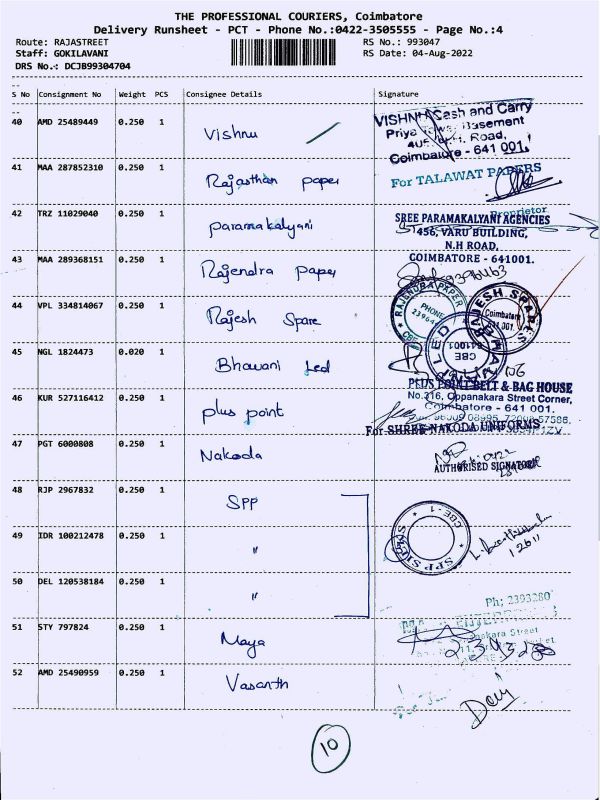 THE PROFESSIONAL COURIERS, Coimbatore
Delivery Runsheet - PCT - Phone No.:0422-3505555 - Page No.:4
Route: RAJASTREET RS No.: 993047
Staff: GOKILAVANI RS Date: 04-Aug-2022
DRS No.: DCJB99304704
S No Consignment No Weight PCS Consignee Details Signature
40 AMD 25489449 0.250 1 Vishnu
VISHNU Cash and Carry
Priya Tower Basement
Road,
Coimbatore - 641 001.
41 MAA 287852310 0.250 1 Rajasthan paper
For TALAWAT PAPERS
Proprietor
42 TRZ 11029040 0.250 1 paramakalyani
SREE PARAMAKALYANI AGENCIES
456, VARU BUILDING,
N.H ROAD,
COIMBATORE - 641001.
43 MAA 289368151 0.250 1 Rajendra paper
RAJENDRA PAPER
PHONE
CBE
44 VPL 334814067 0.250 1 Rajesh Spare
RAJESH SPARES
Coimbatore
641 001.
45 NGL 1824473 0.020 1 Bhawani Led
LED
CBE
641001
46 KUR 527116412 0.250 1 plus point
PLUS POINT BELT & BAG HOUSE
No.316, Oppanakara Street Corner,
Coimbatore - 641 001.
47 PGT 6000808 0.250 1 Nakoda
For SHREE NAKODA UNIFORMS
AUTHORISED SIGNATORY
48 RJP 2967832 0.250 1 SPP
49 IDR 100212478 0.250 1 "
SPP SILKS
CBE - 1
50 DEL 120538184 0.250 1 "
51 STY 797824 0.250 1 Maya
Ph; 2393280
Street
52 AMD 25490959 0.250 1 Vasanth
10